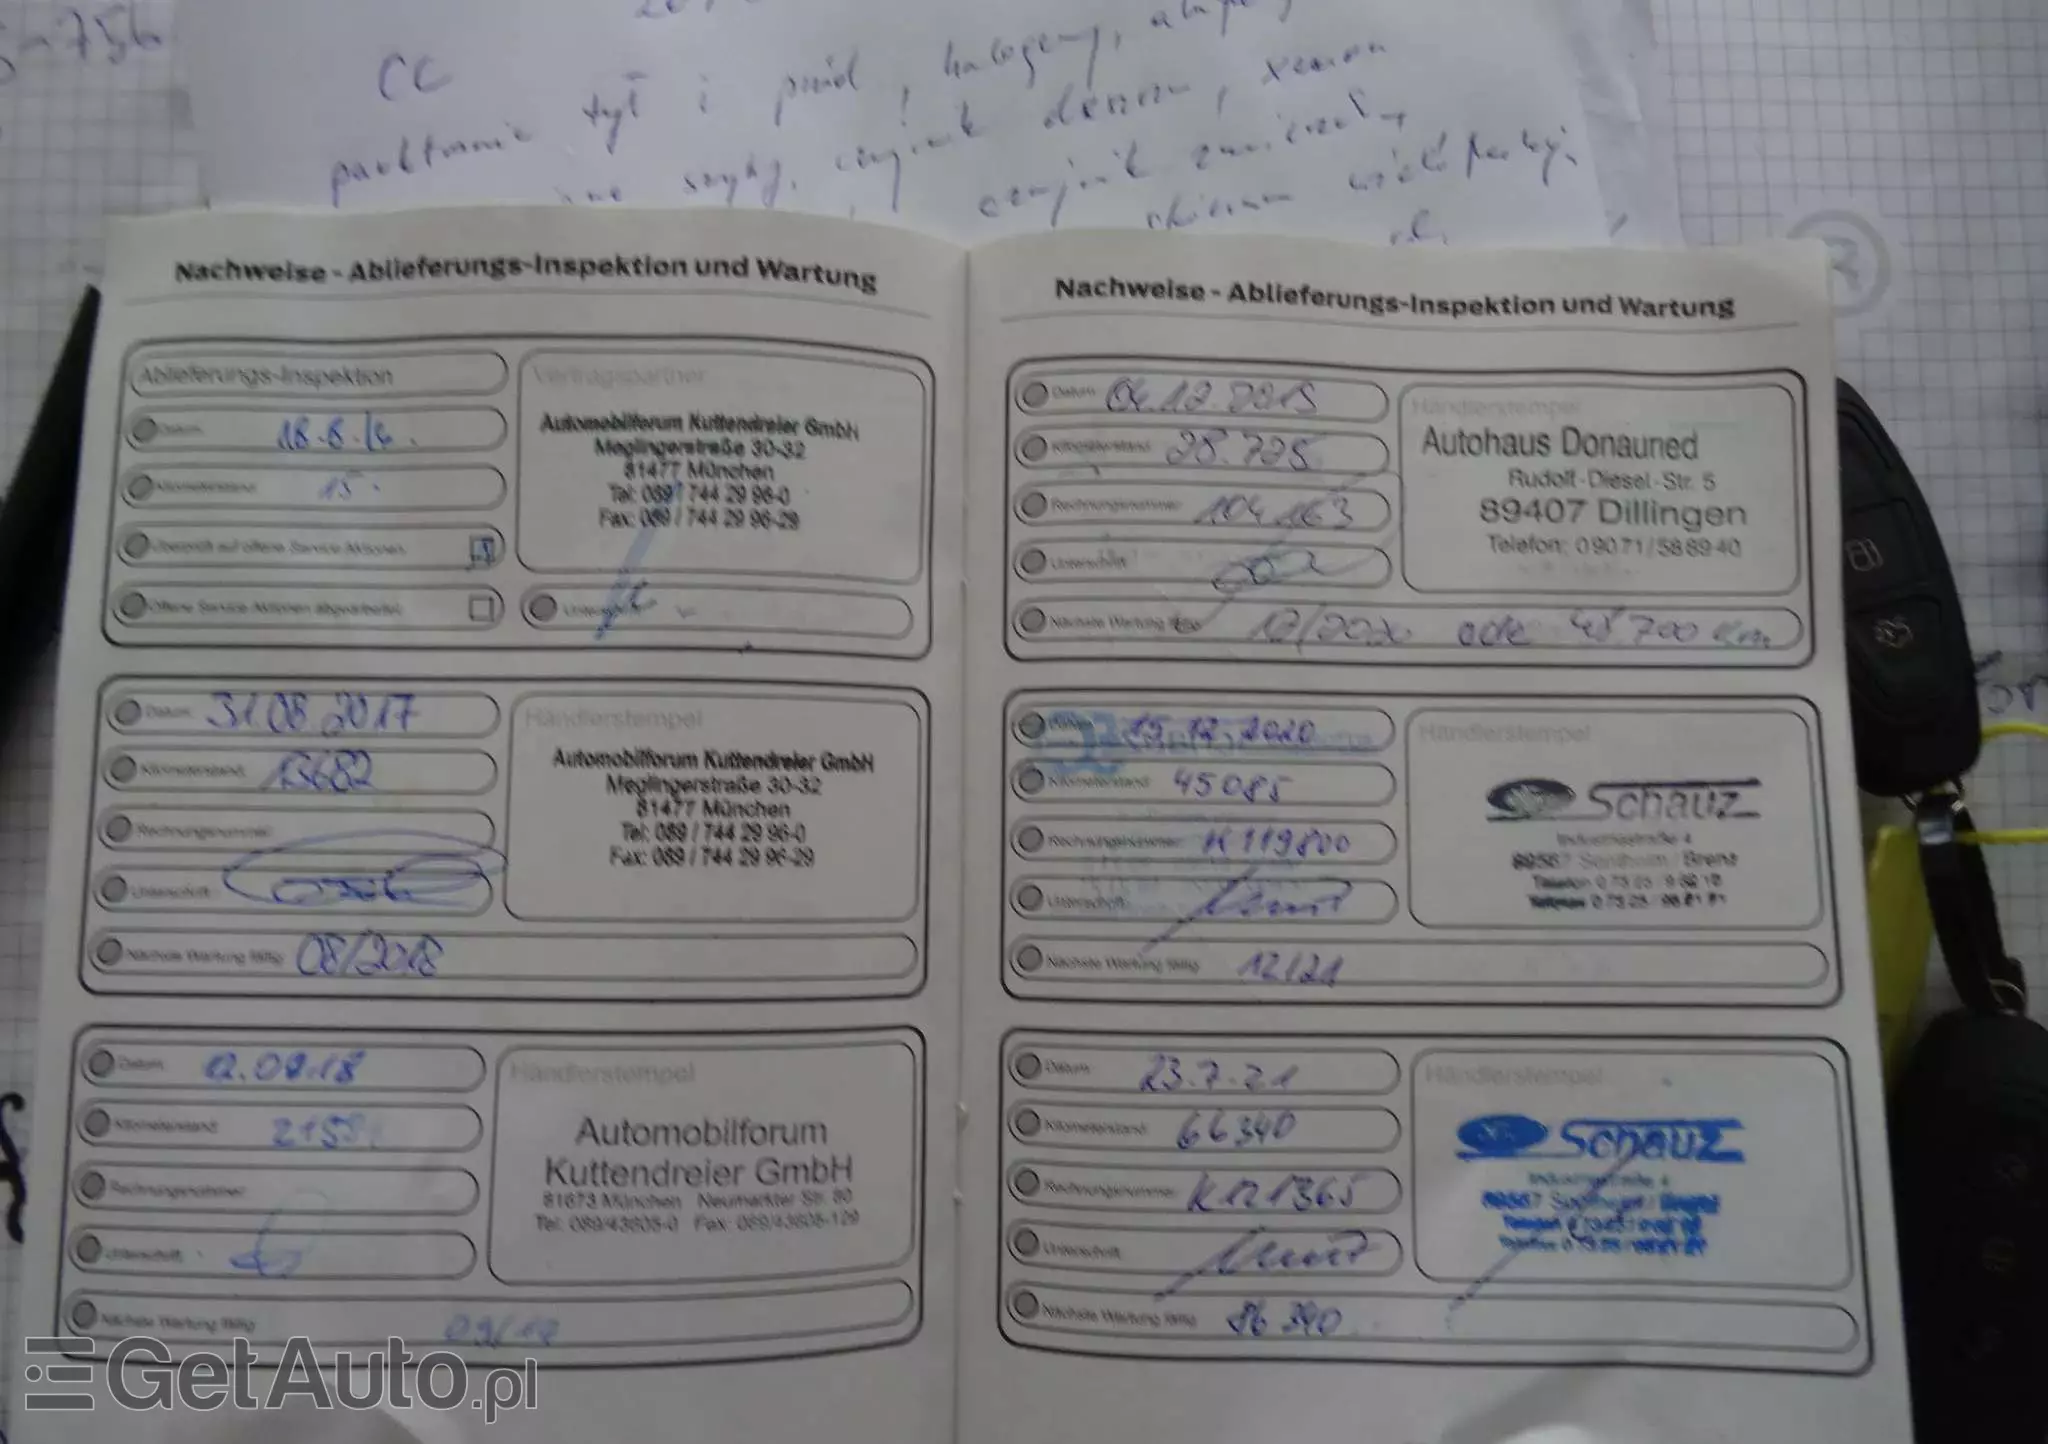 CC
parktronic tył i przód, halogeny,
czujnik deszczu, xenon
czujnik zmierzchu,
Nachweise - Ablieferungs-Inspektion und Wartung
Ablieferungs-Inspektion
Datum 18.8.16.
Kilometerstand 15.
Überprüft auf offene Service Aktionen
Offene Service Aktionen abgearbeitet
Vertragspartner
Automobilforum Kuttendreier GmbH
Meglingerstraße 30-32
81477 München
Tel: 089 / 744 29 96-0
Fax: 089 / 744 29 96-29
Unterschrift
Datum 31.08.2017
Kilometerstand 13682
Rechnungsnummer
Unterschrift
Nächste Wartung fällig 08/2018
Händlerstempel
Automobilforum Kuttendreier GmbH
Meglingerstraße 30-32
81477 München
Tel: 089 / 744 29 96-0
Fax: 089 / 744 29 96-29
Datum 12.09.18
Kilometerstand
Rechnungsnummer
Unterschrift
Nächste Wartung fällig 09/19
Händlerstempel
Automobilforum
Kuttendreier GmbH
81673 München Neumarkter Str. 80
Tel: 089/43605-0 Fax: 089/43605-129
Nachweise - Ablieferungs-Inspektion und Wartung
Datum 04.12.2019
Kilometerstand 28.725
Rechnungsnummer 104163
Unterschrift
Nächste Wartung fällig 12/2020 oder 48700 km
Händlerstempel
Autohaus Donauried
Rudolf-Diesel-Str. 5
89407 Dillingen
Telefon: 09071/588940
Datum 15.12.2020
Kilometerstand 45085
Rechnungsnummer K119800
Unterschrift
Nächste Wartung fällig 12/21
Händlerstempel
Ford Schauz
Industriestraße 4
89567 Sontheim / Brenz
Datum 23.7.21
Kilometerstand 66340
Rechnungsnummer K121365
Unterschrift
Nächste Wartung fällig 86340
Händlerstempel
Ford Schauz
Industriestraße 4
89567 Sontheim / Brenz
GetAuto.pl